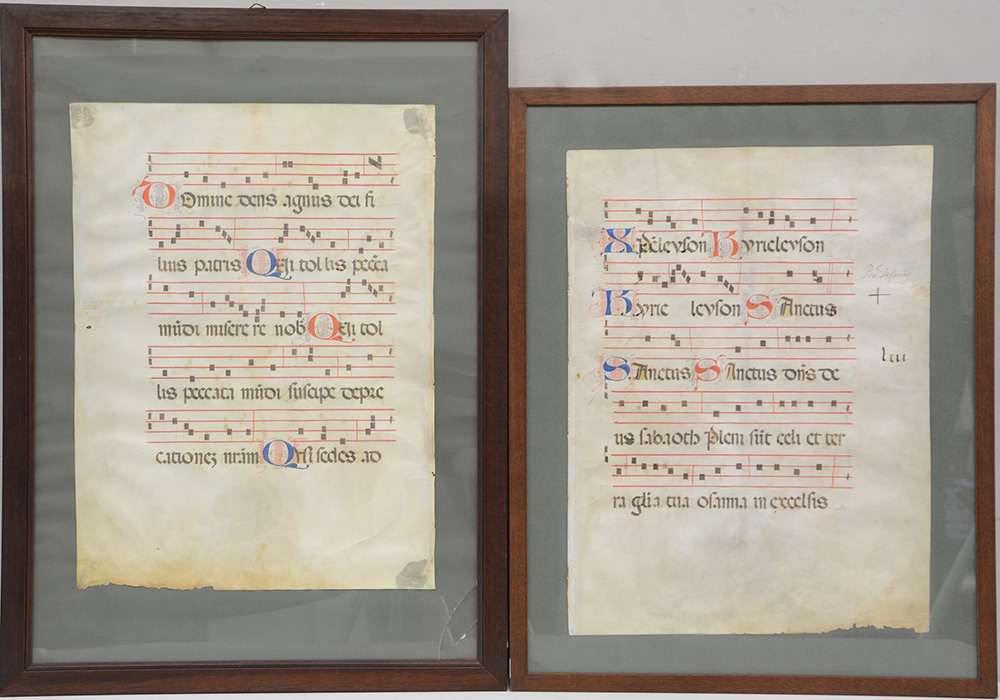 Domine deus agnus dei fi
lius patris Qui tollis pecca
mūdi miserere nob Qui tol
lis peccata mūdi suscipe depre
cationez nr̄am Qui sedes ad
Xp̄eleyson Kyrieleyson
Kyrie leyson Sanctus
Sanctus Sanctus dn̄s de
us sabaoth Pleni sūt celi et ter
ra glīa tua osanna in excelsis
Luu